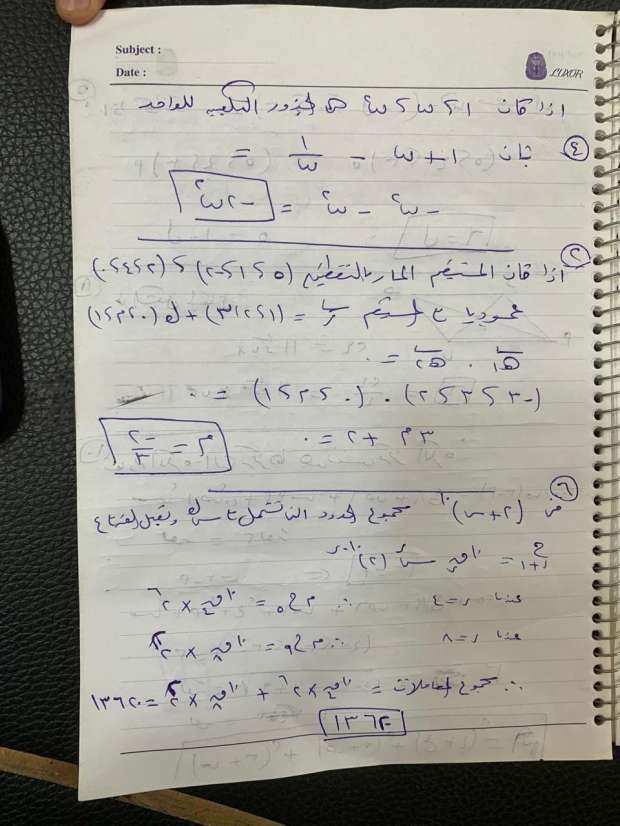 Subject :
Date :
LUXOR
اذا كان ١ ، ω ، ω² هى الجذور التكعيبيه للواحد
٤ فان ١ + ω - ١/ω =
-ω² - ω² = -٢ω²
٢
اذا كان المستقيم المار بالنقطتين (٥، ١، -٢) ، (٢، ٤، ٠)
عموديا على المستقيم ر = (١، ٢، ٣) + ك (٠، م، ١)
هـ١ . هـ٢ = ٠
(-٣، ٣، ٢) . (٠، م، ١) = ٠
٣م + ٢ = ٠ م = -٢/٣
٦
(٢ + س)^١٠ مجموع الحدود التى تشتمل على س
ح ر+١ = ١٠ق ر س^ر (٢)^١٠-ر
عندما ر = ٤ ∴ م ح٥ = ١٠ق٤ × ٢^٦
عندما ر = ٨ ∴ م ح٩ = ١٠ق٨ × ٢^٢
∴ مجموع المعاملات = ١٠ق٤ × ٢^٦ + ١٠ق٨ × ٢^٢ = ١٣٦٢٠